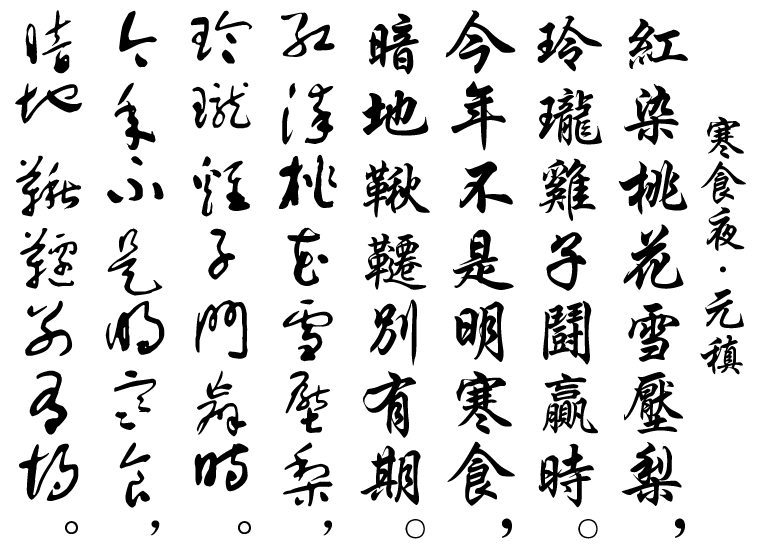 寒食夜・元稹
紅染桃花雪壓梨，
玲瓏雞子鬪贏時。
今年不是明寒食，
暗地鞦韆別有期。
紅染桃花雪壓梨，
玲瓏雞子鬪贏時。
今年不是明寒食，
暗地鞦韆別有期。